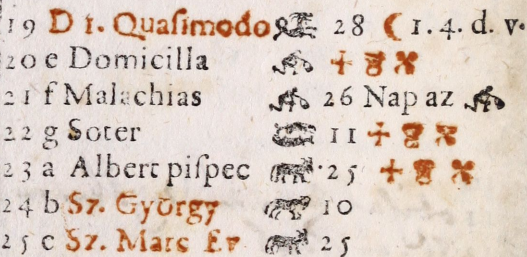 19 D 1. Quaſimodo 28 1. 4. d. v.
20 e Domicilla
21 f Malachias 26 Nap az
22 g Soter 11
23 a Albert piſpec 25
24 b Sz. György 10
25 c Sz. Marc Ev 25